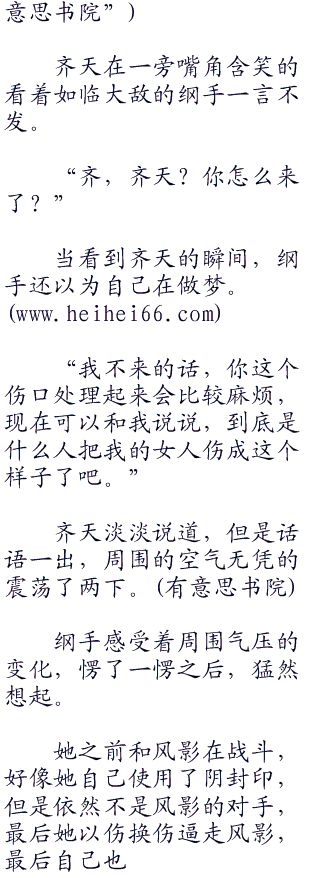 意思书院”)
齐天在一旁嘴角含笑的
看着如临大敌的纲手一言不
发。
“齐，齐天？你怎么来
了？”
当看到齐天的瞬间，纲
手还以为自己在做梦。
(www.heihei66.com)
“我不来的话，你这个
伤口处理起来会比较麻烦，
现在可以和我说说，到底是
什么人把我的女人伤成这个
样子了吧。”
齐天淡淡说道，但是话
语一出，周围的空气无凭的
震荡了两下。(有意思书院)
纲手感受着周围气压的
变化，愣了一愣之后，猛然
想起。
她之前和风影在战斗，
好像她自己使用了阴封印，
但是依然不是风影的对手，
最后她以伤换伤逼走风影，
最后自己也